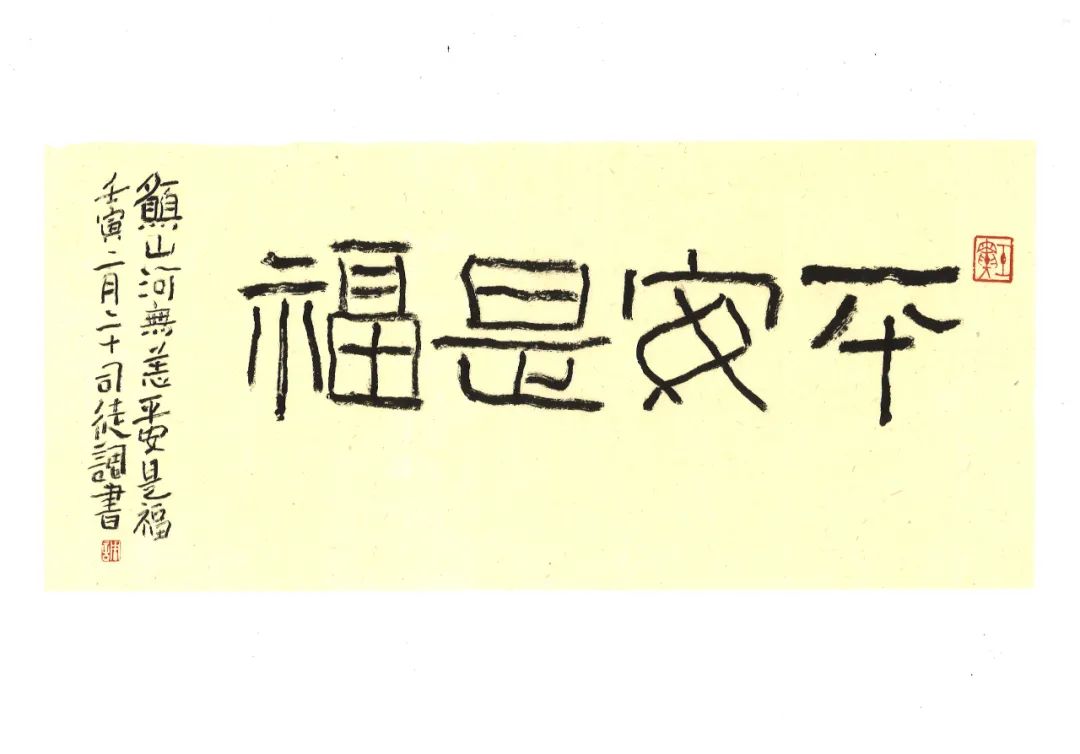 平安是福
顥山河無恙平安是福
壬寅二月二十司徒調書